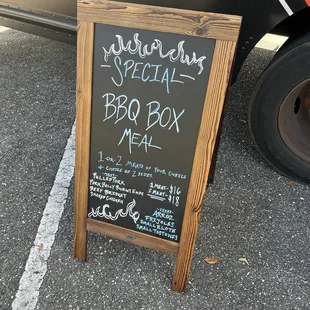 - SPECIAL -
BBQ BOX
MEAL
1 or 2 MEATS OF YOUR CHOICE
+ CHOICE OF 2 SIDES.
- MEAT -
PULLED PORK
PORK BELLY BURNT ENDS
BEEF BRISKET
SMOKED CHICKEN
1 MEAT - $16
2 MEAT - $18
- SIDES -
ARROZ
FRIJOLES
SMALL ELOTE
SMALL TOSTONES